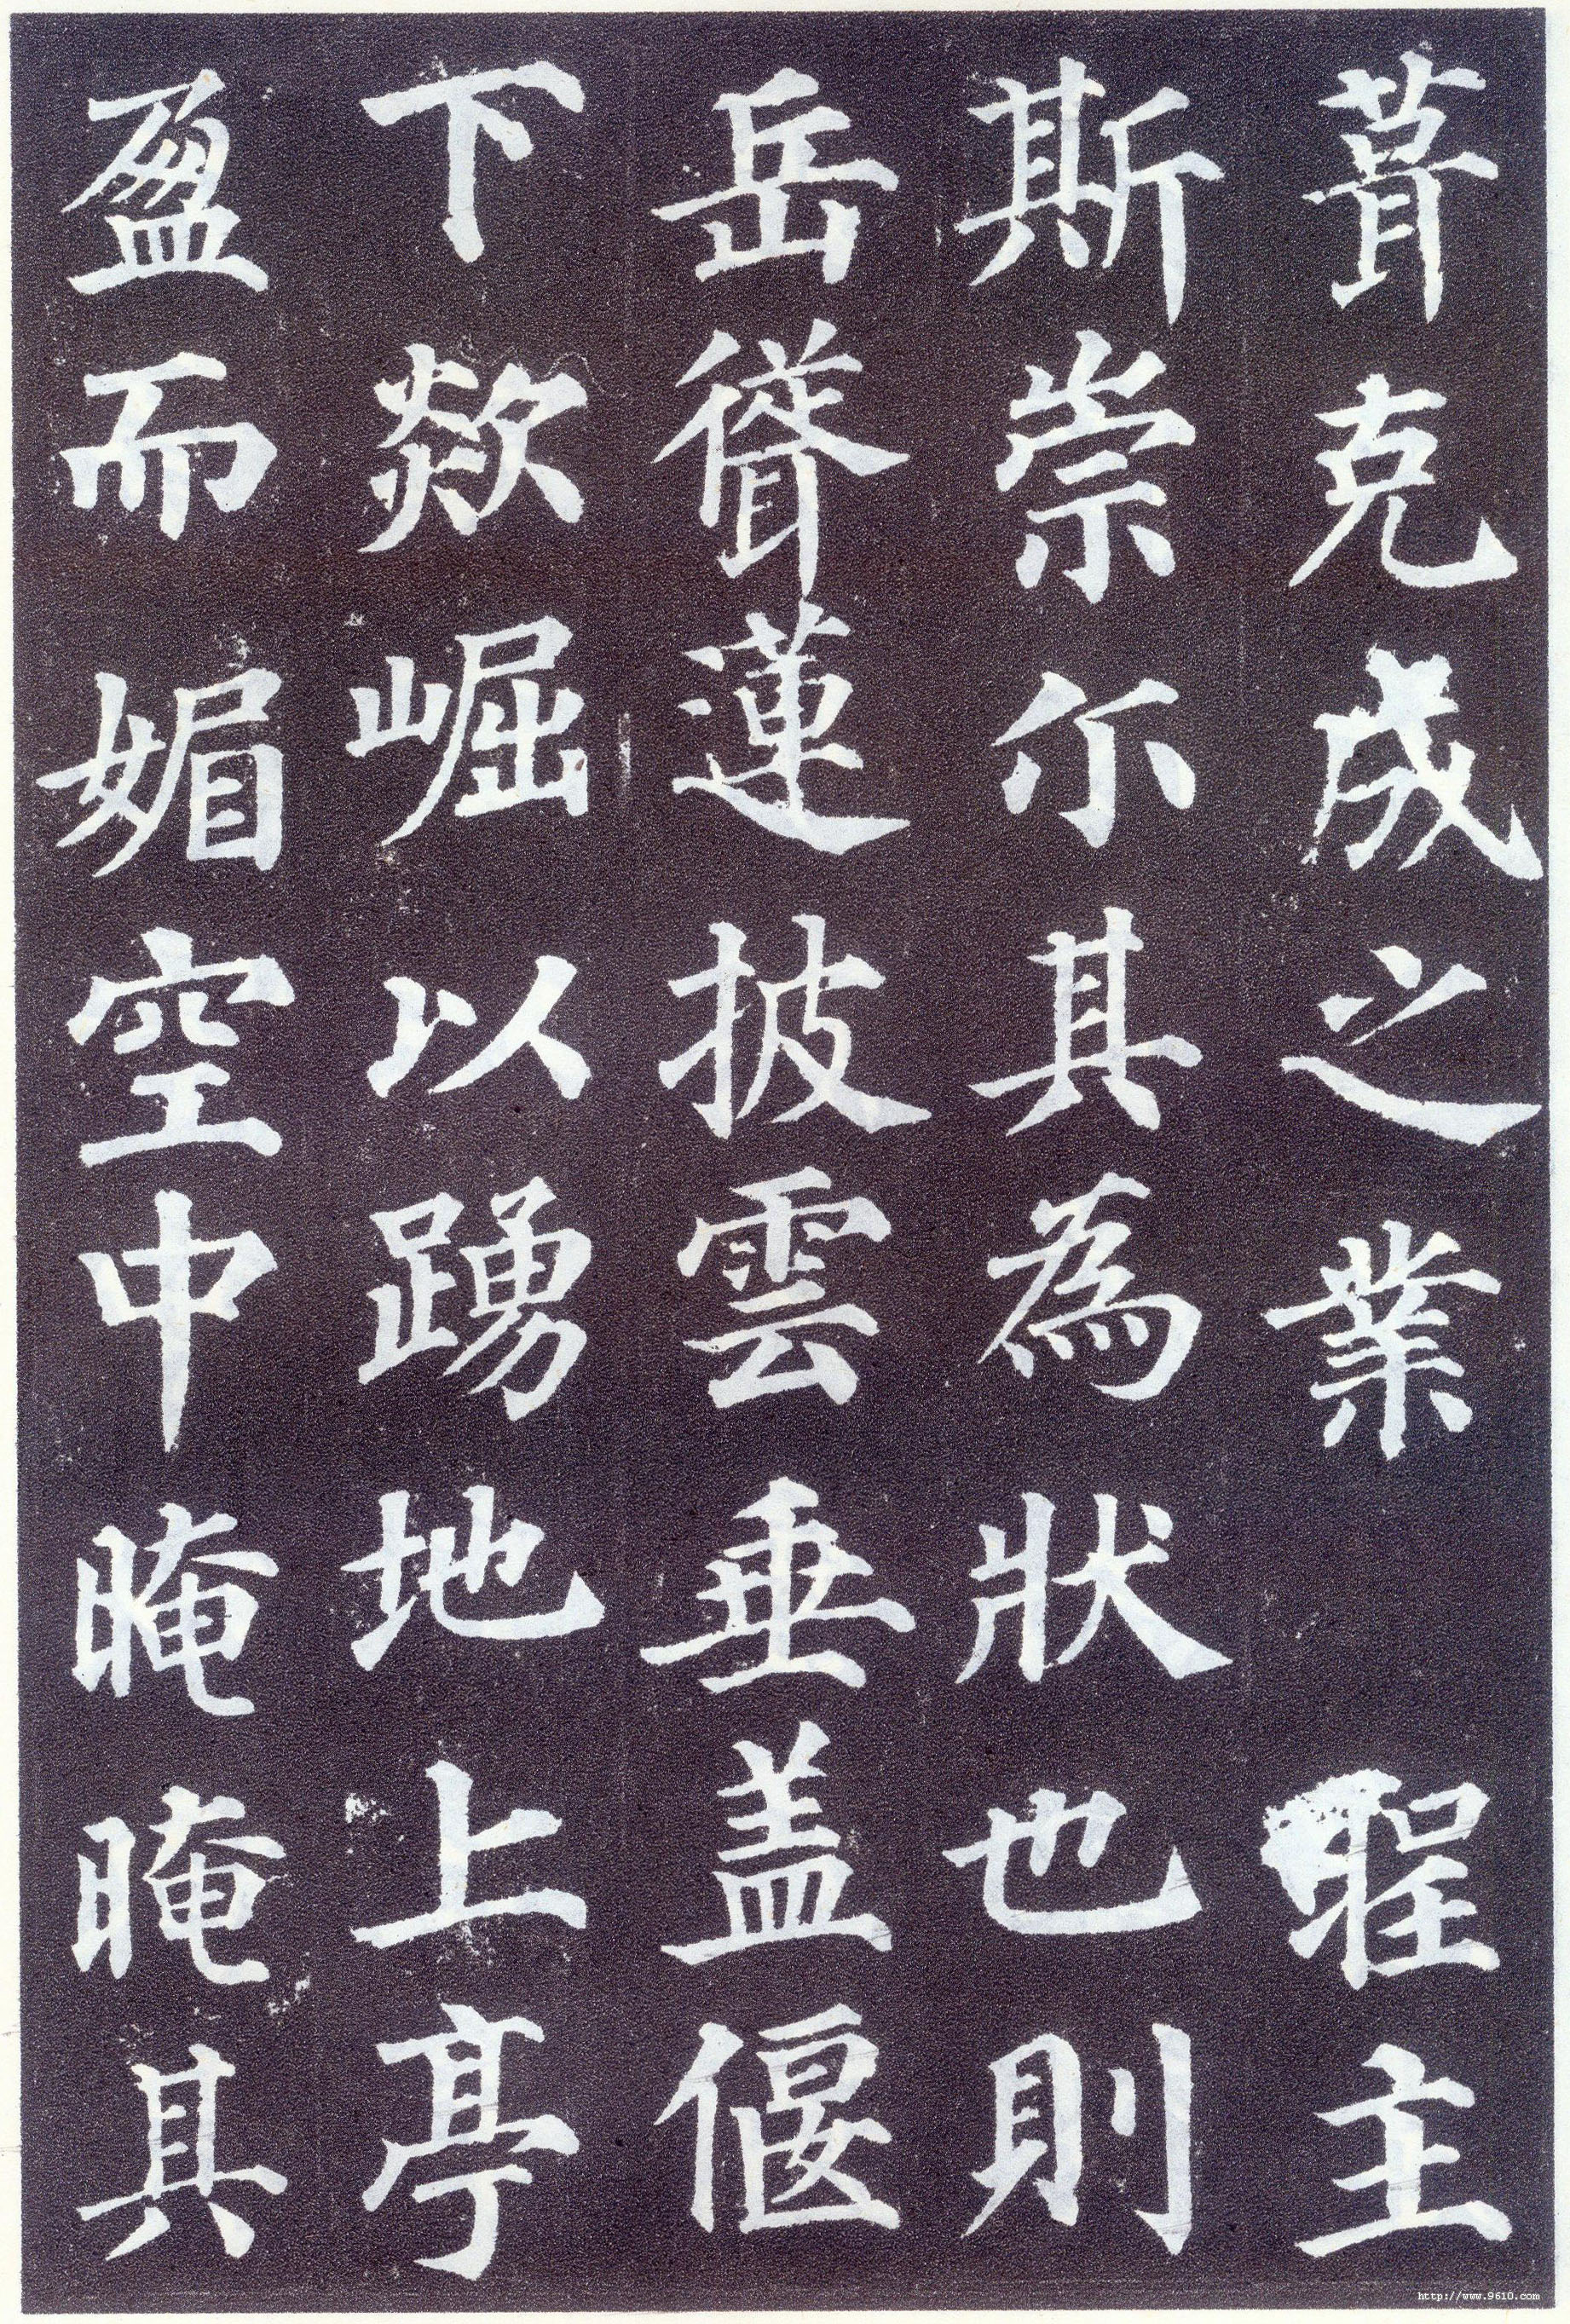 克成之業　聖主
斯崇尒其為狀也則
岳聳蓮披雲垂盖偃
下欻崛以踴地上亭
盈而媚空中晻晻其
http://www.9610.com